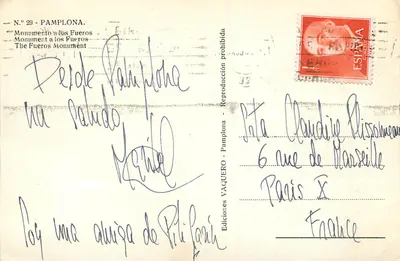 N.º 29 - PAMPLONA.
Monumento a los Fueros
Monument a los Fueros
The Fueros Monument
Desde Pamplona
un saludo
Soy una amiga de Pili
Ediciones VAQUERO - Pamplona - Reproducción prohibida
ESPAÑA
Srta Claudine
6 rue de Marseille
Paris X
France